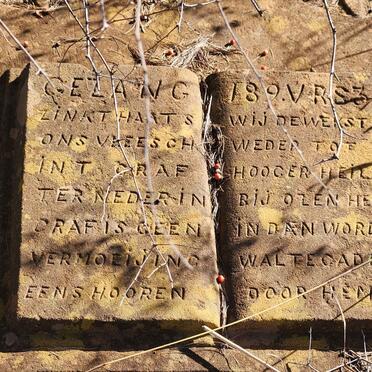 GEZANG
ZINKT HAATS
ONS VLEESCH
IN T GRAF
TER NEDER IN
GRAF IS GEEN
VERMOEIJING
EENS HOOREN
189. VRS 3
WIJ DE WEKST
WEDER TOT
HOOGER HEIL
BIJ OZEN HE
IN DAN WORD
WALTEGADE
DOOR HEM